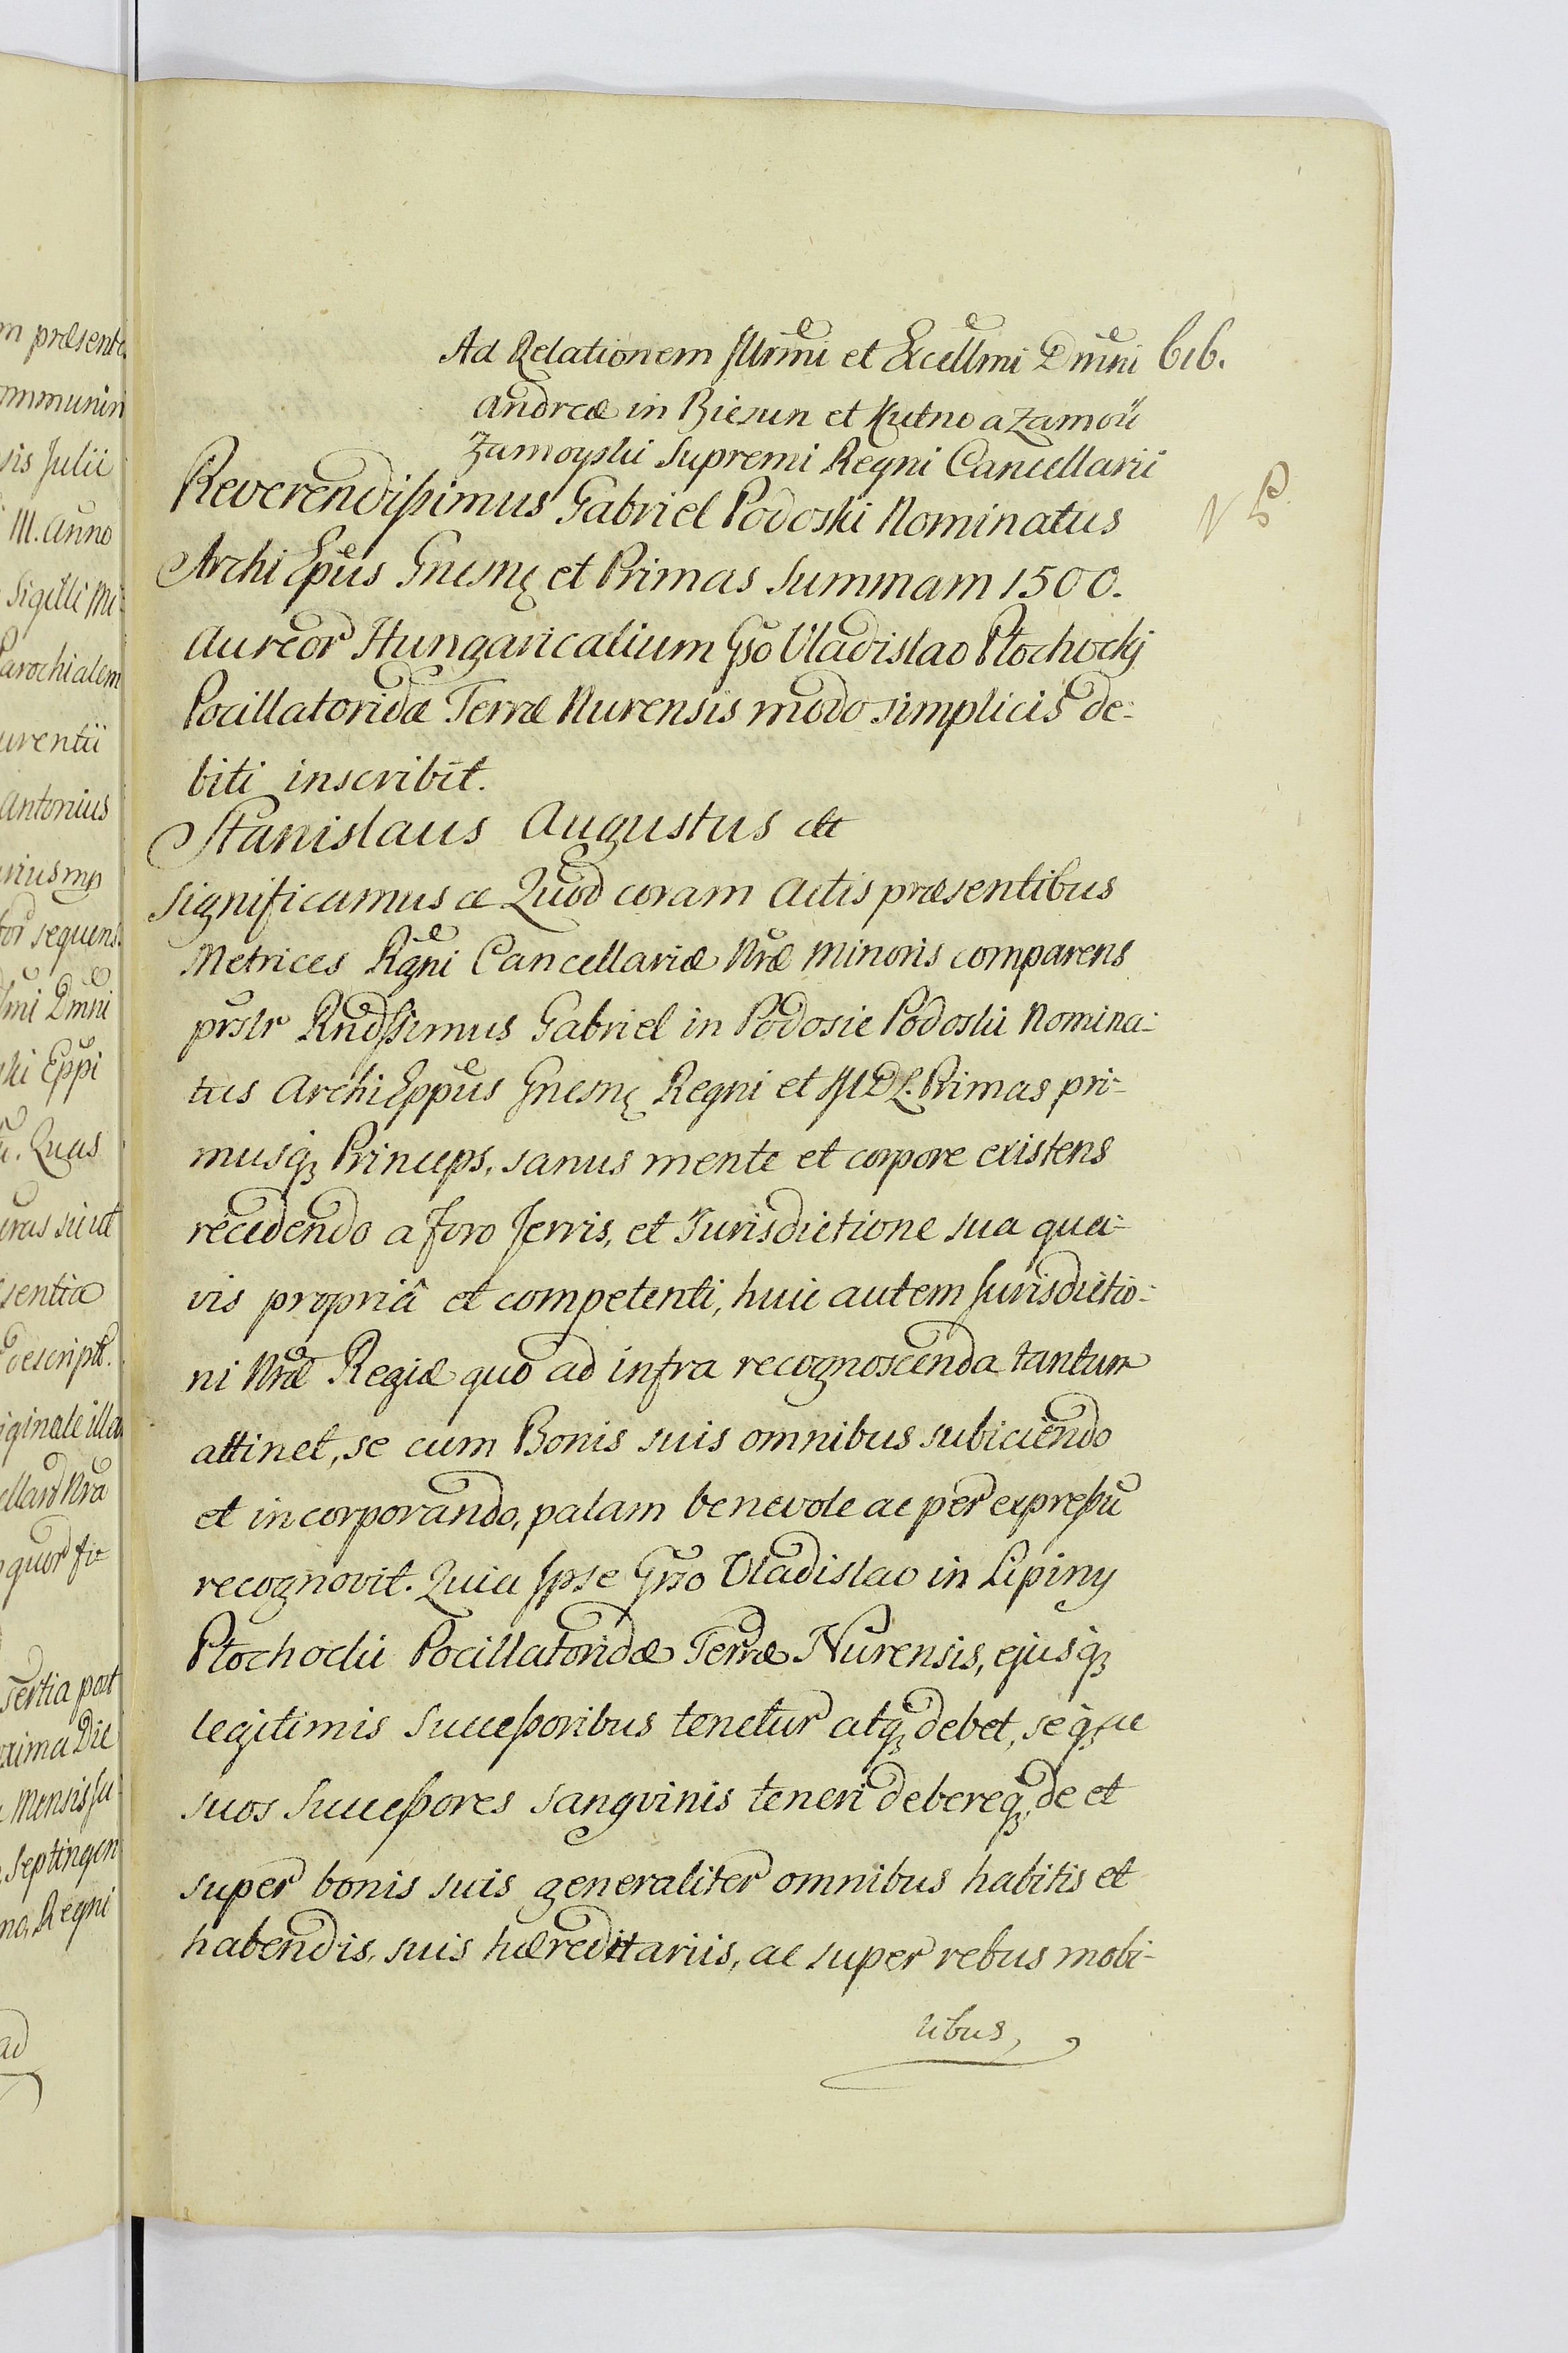 Ad Relationem Illrmi et Excellmi Dmni 616.
Andreæ in Biezun et Kutno a Zamość
Zamoyski Supremi Regni Cancellarii
Reverendissimus Gabriel Podoski Nominatus
Archi Epus Gnesnę et Primas Summam 1500.
Aureor Hungaricalium Gso Vladislao Ptochocki
Pocillatoridæ Terræ Nurensis modo simplicis de:
biti inscribit.
Stanislaus Augustus ett
Significamus æ Quod coram Actis præsentibus
Metrices Rgni Cancellariæ Nræ Minoris comparens
prslr Rndssimus Gabriel in Podosie Podoski Nomina:
tus Archi Eppus Gnesnę Regni et M D L. Primas pri-
musq Princeps, sanus mente et corpore existens
recedendo a foro Terris, et Jurisdictione sua qua-
vis propriâ et competenti, huic autem Jurisdictio:
ni Nræ Regiæ quo ad infra recognoscenda tantum
attinet, se cum Bonis suis omnibus subiciendo
et incorporando, palam benevole ac per expressū
recognovit. Quia Ipse Gnso Vladislao in Lipiny
Ptochocki Pocillatoridæ Terræ Nurensis, ejusq
legitimis Successoribus tenetur atq debet, seq ac
suos Successores sangvinis teneri debereq, de et
super bonis suis generaliter omnibus habitis et
habendis, suis hæredittariis, ac super rebus mobi-
libus,